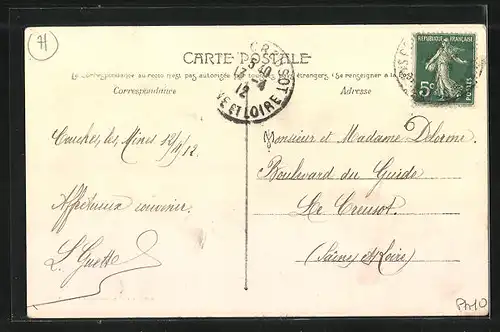 71
CARTE POSTALE
La correspondance au recto n'est pas autorisée par tous les pays étrangers. (Se renseigner à la
Correspondance
Adresse
LE CREUSOT
5 10
13 -4
12
SNE ET LOIRE
REPUBLIQUE FRANÇAISE
5c
POSTES
Couches les Mines 12/4/12.
Affectueux souvenir.
L. Guett
Monsieur et Madame Delorme.
Boulevard du Guide
Le Creusot.
(Saône et Loire)